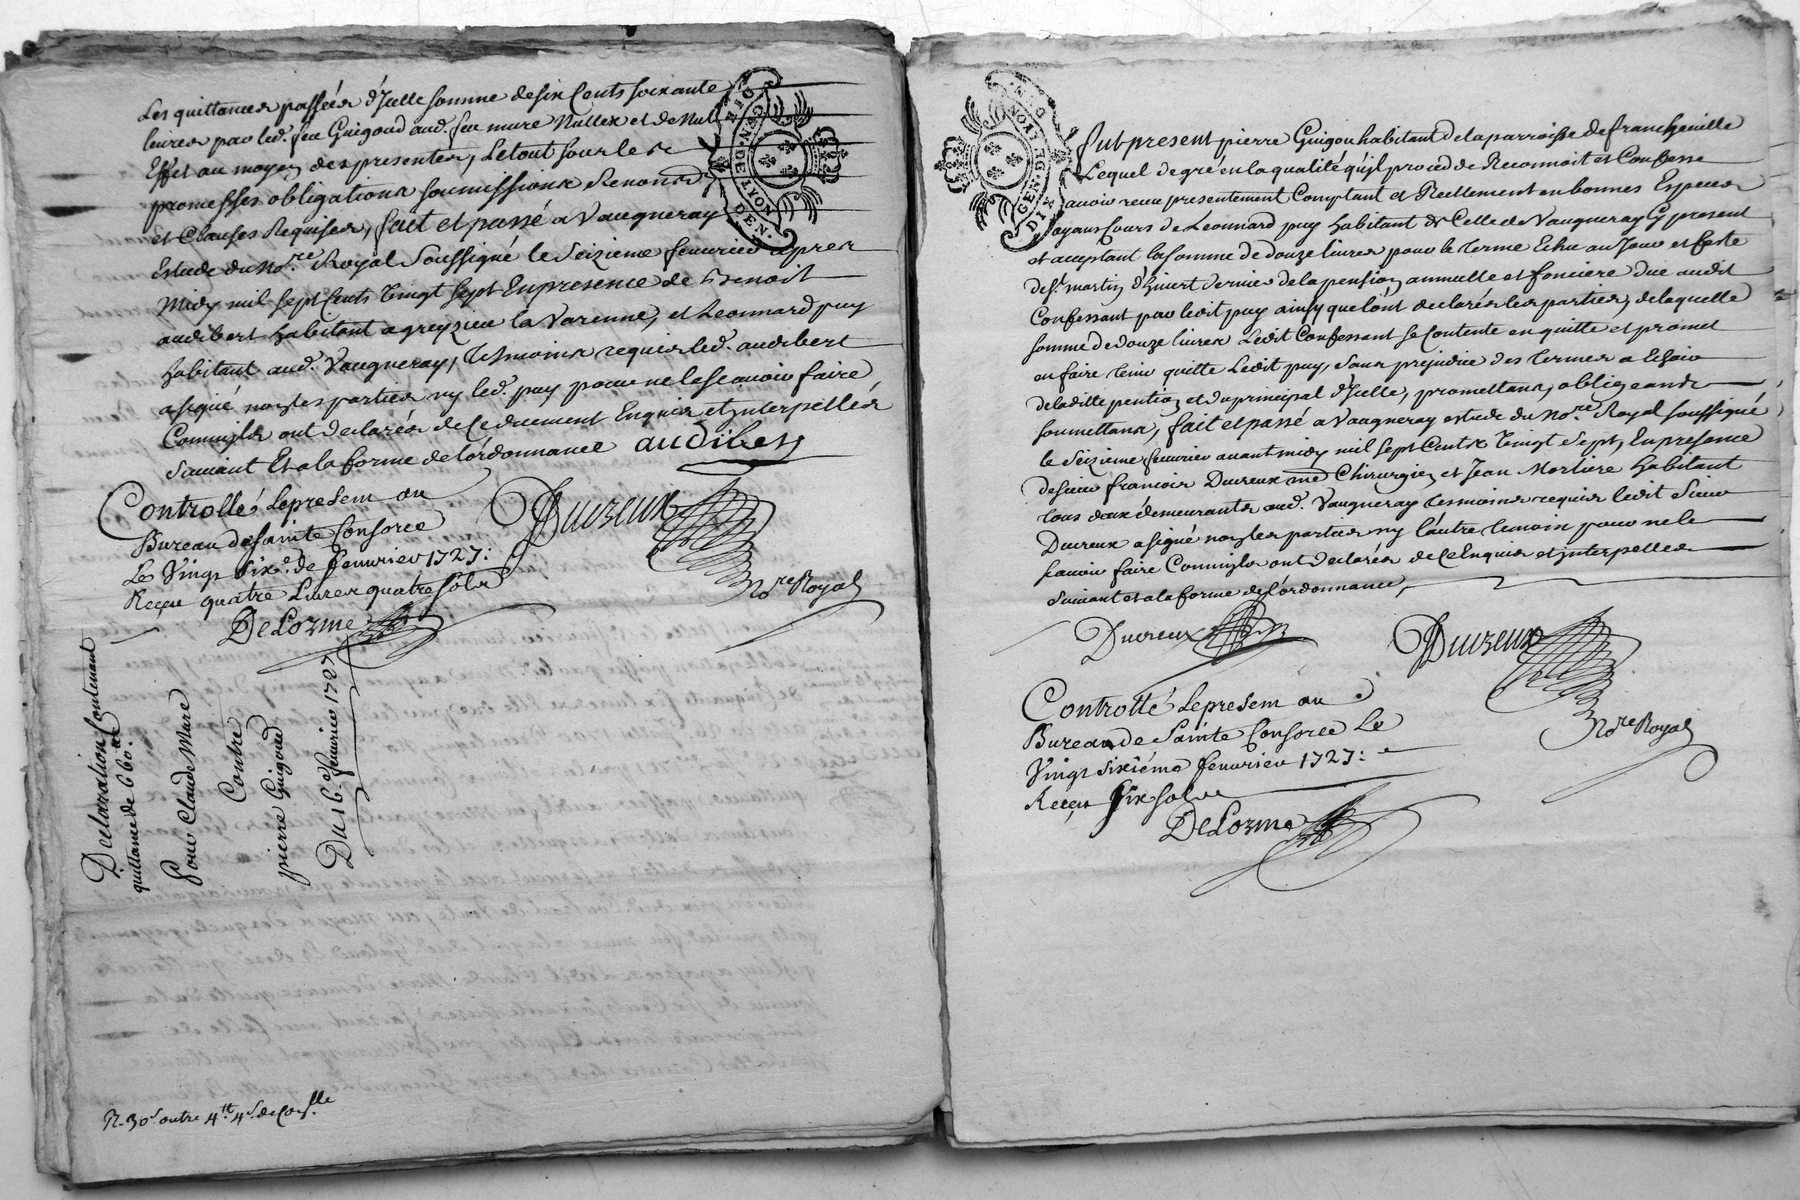 Les quittances passées d'Icelle somme de six Cents soixante
livres par led. feu Guigoud aud. feu mure Nulles et de Nul
Effet au moyen des presentes, Le tout sous les
promesses obligations soumissions Renon
et Clauses Requises, fait et passé a Vaugneray
Estude du no.re Royal Soussigné le Seizieme feuvrier apres
Midy mil sept Cents Vingt sept En presence de Benoit
audibert habitant a greyzieu la Varenne, et Leonnard puy
habitant aud. Vaugneray, Tesmoins requis led. audibert
a signé non les parties ny led. puy pour ne le scavoir faire
Comm'ils ont declarés de Ce duement Enquis et Interpellés
suivant Et a la forme de l'ordonnance audibert
Controllé Le present au
Bureau de Sainte Consorce
Le Vingt six.e de feuvrier 1727:
Reçeu quatre Livres quatre sols
DeLorme
Ducreux
No.re Royal
Declaration Contenant
quittance de 660.tt
Pour Claude Mure
Contre
pierre Guigoud
Du 16.e feuvrier 1727
R. 30.s outre 4.tt 4.s de Con.lle
GEN. DE LYON
GEN. DE LYON
Fut present pierre Guigou habitant de la parroisse de francheville
Lequel de gré en la qualité qu'il procede Reconnoit et Confesse
avoir receu presentement Comptant et Reellement en bonnes Especes
ayans Cours de Leonnard puy habitant de Celle de Vaugneray Cy present
et acceptant la somme de douze livres pour le terme Echu au Jour et feste
de S.t martin d'hivert dernier de la pension annuelle et fonciere due audit
Confessant par ledit puy ainsy que l'ont declarés les parties, de laquelle
somme de douze livres Ledit Confessant se Contente en quitte et promet
en faire tenir quitte Ledit puy, sans prejudice des termes a Echoir
de laditte pention et du principal d'Icelle, promettans, obligeants
soumettans, fait et passé a Vaugneray estude du no.re Royal soussigné
le Seizieme feuvrier avant midy mil sept Cents Vingt Sept, En presence
de sieur francois Ducreux me Chirurgien et Jean Morliere habitant
tous deux demeurants aud. Vaugneray tesmoins requis ledit Sieur
Ducreux a signé non les parties ny l'autre temoin pour ne le
scavoir faire Comm'ils ont declarés de Ce Enquis et Interpellés
suivant et a la forme de l'ordonnance,
Ducreux
Ducreux
No.re Royal
Controllé Le present au
Bureau de Sainte Consorce Le
Vingt sixiéme feuvrier 1727:
Receu Six sols
DeLorme